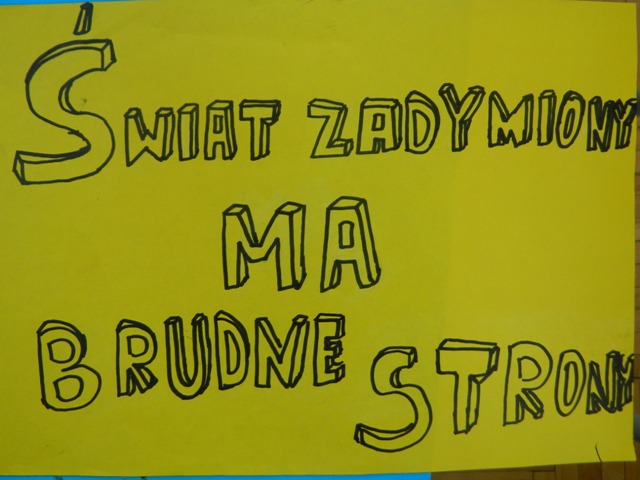 ŚWIAT ZADYMIONY
MA
BRUDNE STRONY